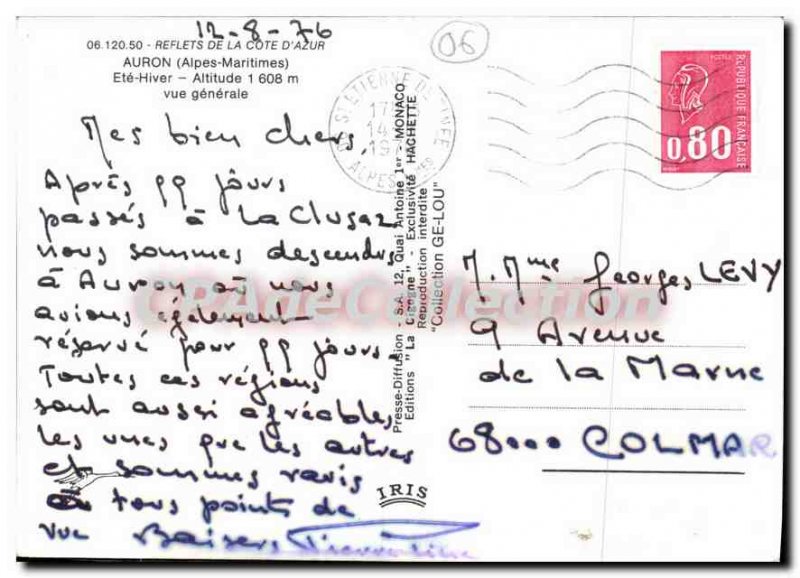 12-8-76
06.120.50 - REFLETS DE LA COTE D'AZUR
AURON (Alpes-Maritimes)
Eté-Hiver – Altitude 1 608 m
vue générale
Mes bien chers,
Après 99 jours
passés à La Clusaz
nous sommes descendus
à Auron où nous
avions également
réservé pour 99 jours.
Toutes ces régions
sont aussi agréables
les unes que les autres
et sommes ravis
à tous points de
vue Baisers
06
ST ETIENNE DE TINEE
17
14
19
ALPES
Presse-Diffusion - S.A. 12, Quai Antoine 1er - MONACO
Editions "La Cigogne" - Exclusivité HACHETTE
Reproduction interdite
"Collection GE-LOU"
IRIS
POSTES
REPUBLIQUE FRANÇAISE
0,80
M. Mme Georges LEVY
9 Avenue
de la Marne
68000 COLMAR
CPAdeCollection